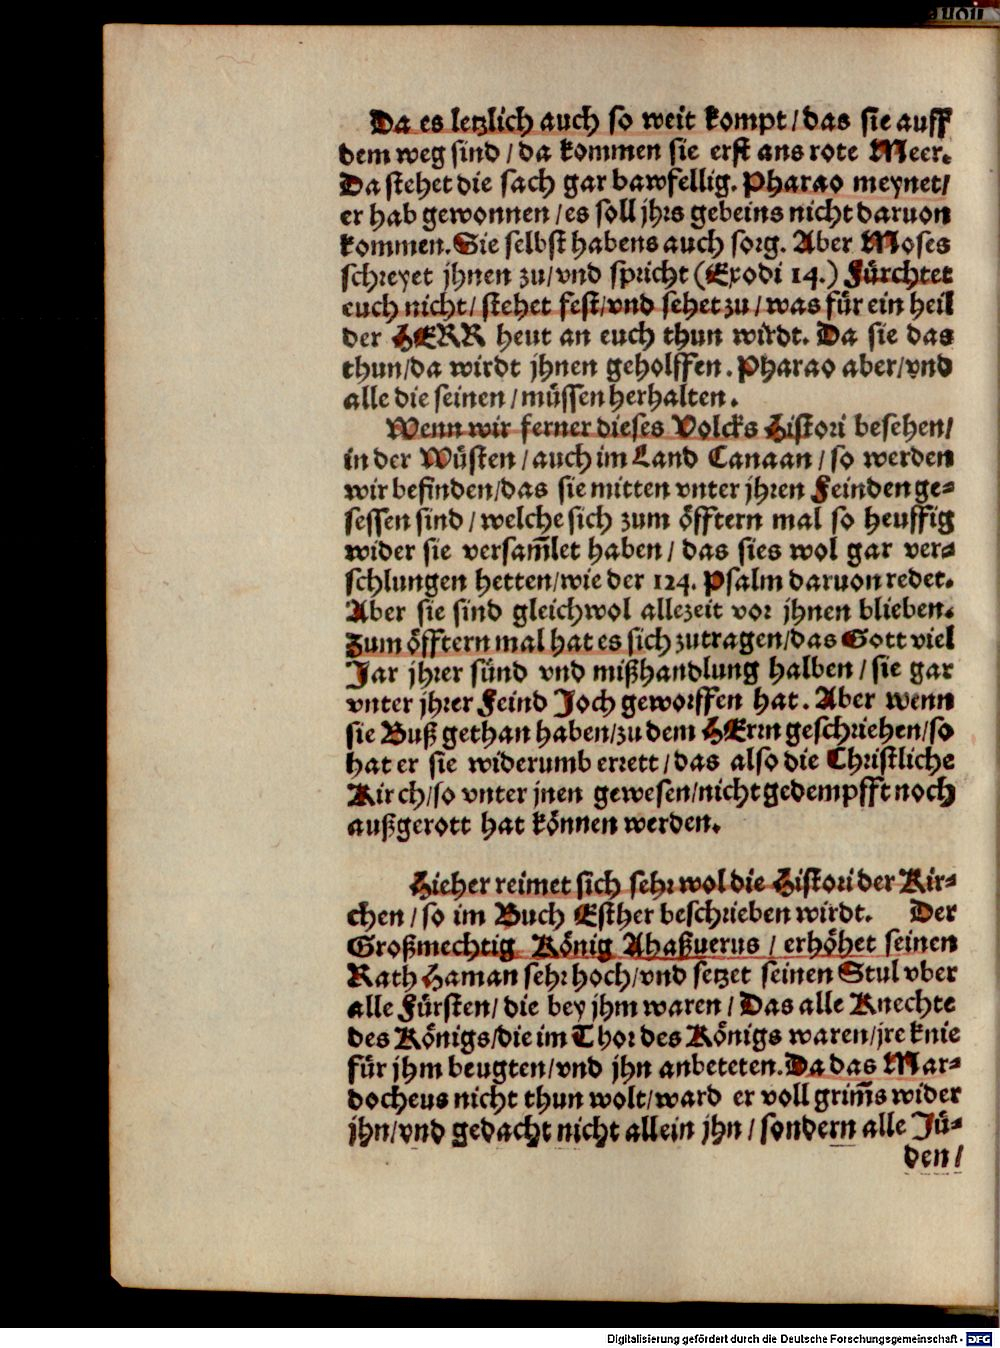 Da es letzlich auch so weit kompt / das sie auff
dem weg sind / da kommen sie erst ans rote Meer.
Da stehet die sach gar bawfellig. Pharao meynet /
er hab gewonnen / es soll jhrs gebeins nicht daruon
kommen. Sie selbst habens auch sorg. Aber Moses
schreyet jhnen zu / vnd spricht (Exodi 14.) Fürchtet
euch nicht / stehet fest / vnd sehet zu / was für ein heil
der HERR heut an euch thun wirdt. Da sie das
thun / da wirdt jhnen geholffen. Pharao aber / vnd
alle die seinen / müssen herhalten.
Wenn wir ferner dieses Volcks Histori besehen /
in der Wüsten / auch im Land Canaan / so werden
wir befinden / das sie mitten vnter jhren Feinden ge-
sessen sind / welche sich zum öfftern mal so heuffig
wider sie versam̃let haben / das sies wol gar ver-
schlungen hetten / wie der 124. Psalm daruon redet.
Aber sie sind gleichwol allezeit vor jhnen blieben.
Zum öfftern mal hat es sich zutragen / das Gott viel
Jar jhrer sünd vnd mißhandlung halben / sie gar
vnter jhrer Feind Joch geworffen hat. Aber wenn
sie Buß gethan haben / zu dem HErrn geschriehen / so
hat er sie widerumb errett / das also die Christliche
Kirch / so vnter jnen gewesen / nicht gedempfft noch
außgerott hat können werden.
Hieher reimet sich sehr wol die Histori der Kir-
chen / so im Buch Esther beschrieben wirdt. Der
Großmechtig König Ahaßuerus / erhöhet seinen
Rath Haman sehr hoch / vnd setzet seinen Stul vber
alle Fürsten / die bey jhm waren / Das alle Knechte
des Königs / die im Thor des Königs waren / jre knie
für jhm beugten / vnd jhn anbeteten. Da das Mar-
docheus nicht thun wolt / ward er voll grim̃s wider
jhn / vnd gedacht nicht allein jhn / sondern alle Jü-
den /
Digitalisierung gefördert durch die Deutsche Forschungsgemeinschaft - DFG